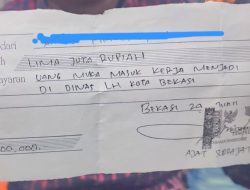 dari
LIMA JUTA RUPIAH
UANG MUKA MASUK KERJA MENJADI
DI DINAS LH KOTA BEKASI
BEKASI 29
00.000,-